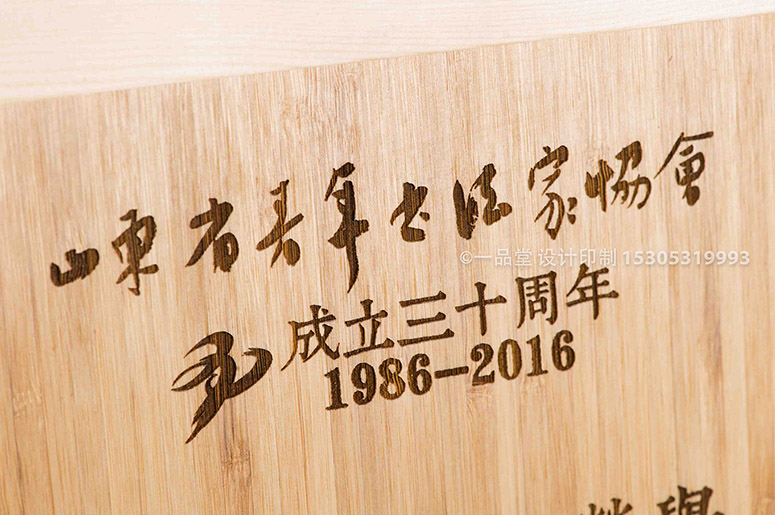 山東省青年书法家協會
©一品堂 设计印制 15305319993
成立三十周年
1986-2016